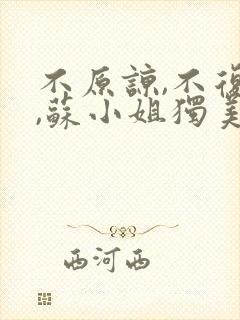 不原諒,不復
,蘇小姐獨美
西河西